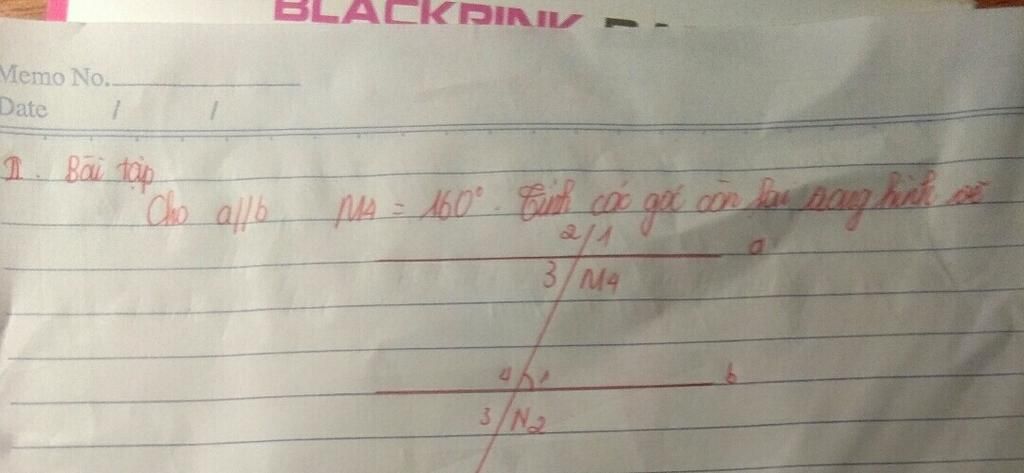 BLACKPINK
Memo No.
Date / /
II. Bài tập
Cho a//b M4 = 160°. Tính các góc còn lại trong hình vẽ
2 1
a
3 M4
4 1
b
3 N2